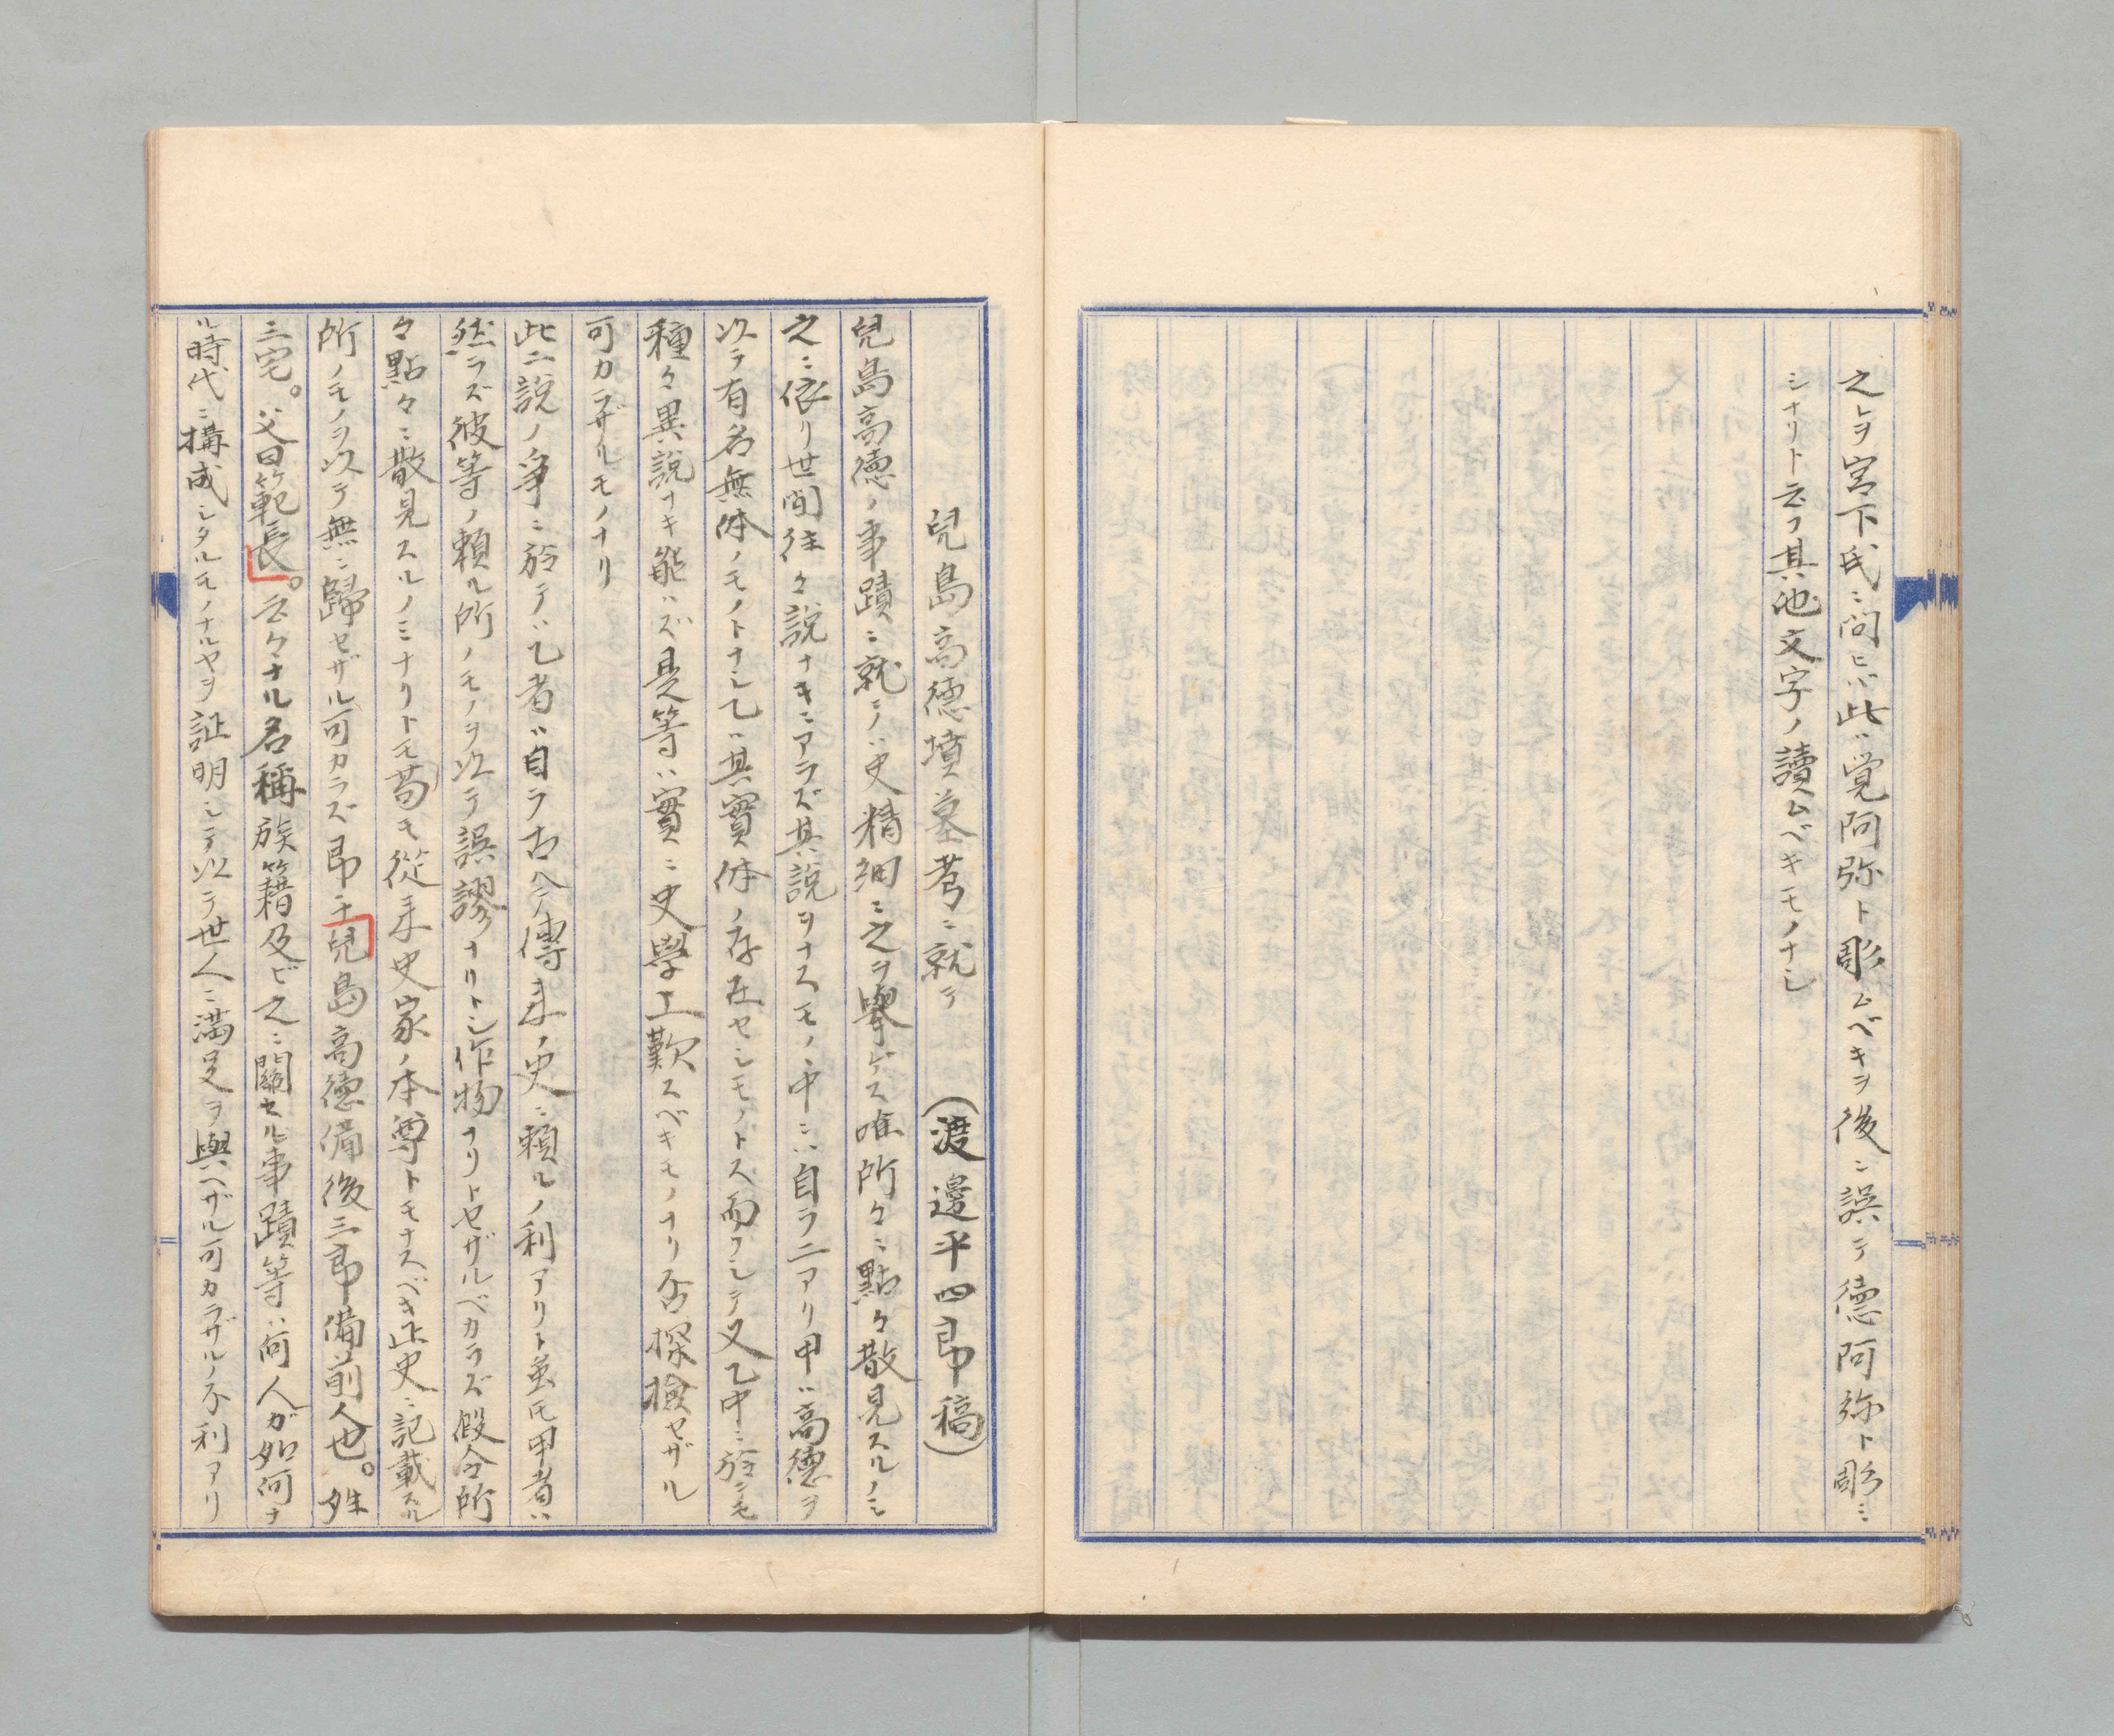 之レヲ宮下氏ニ問ヒバ此ハ覚阿弥ト彫ムベキヲ後ニ誤テ徳阿弥ト彫ミ
シナリト云フ其他文字ノ讀ムベキモノナシ
兒島高德墳墓考ニ就テ　（渡邉平四郎稿）
兒島高德ノ事蹟ニ就テハ史精細ニ之ヲ擧ゲズ唯所々ニ點々散見スルノミ
之ニ依リ世間往々説ナキニアラズ其説ヲナスモノヽ中ニハ自ラ二アリ甲ハ高德ヲ
以テ有名無体ノモノトナシ乙ハ其實体ノ存在セシモノトス而シテ又乙中ニ於テモ
種々異説ナキ能ハズ是等ハ實ニ史學上歎スベキモノナリ否探撿セザル
可カラザルモノナリ
此二説ノ爭ニ於テハ乙者ハ自ラ古ヘノ傳来ノ史ニ頼ルノ利アリト虽モ甲者ハ
然ラズ彼等ノ頼ル所ノモノヲ以テ誤謬ナリトシ作物ナリトセザルベカラズ假令所
々點々ニ散見スルノミナリトモ苟モ從来史家ノ本尊トモナスベキ正史ニ記載スル
所ノモノヲ以テ無ニ歸セザル可カラズ即チ兒島高德備後三郎備前人也。姓
三宅。父曰範長。云々ナル名稱族籍及ビ之ニ關セル事蹟等ハ何人ガ如何ナ
ル時代ニ構成シタルモノナルヤヲ証明シテ以テ世人ニ満足ヲ與ヘザル可カラザルノ不利アリ